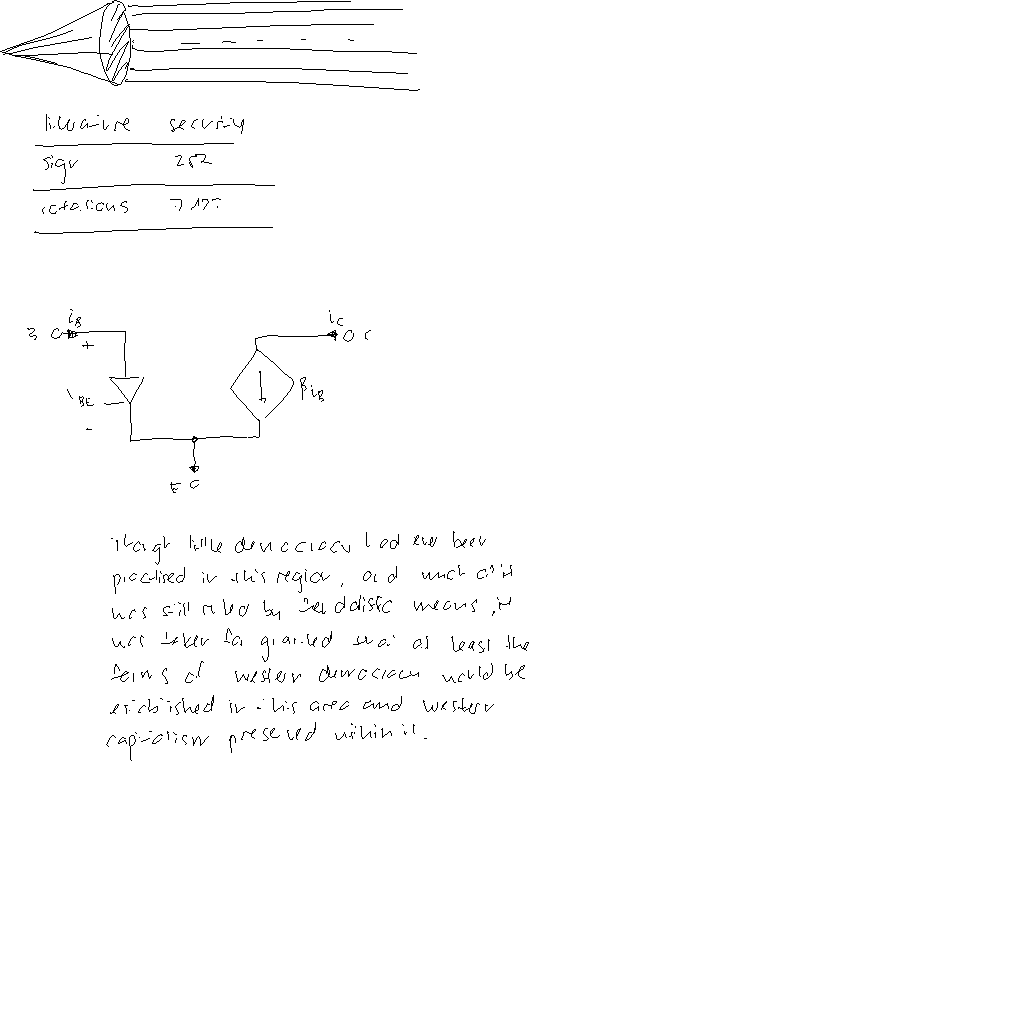 literature security
sign 252
rotations
i_B
i_C
B
C
+
BE
-
β i_B
E
Though little democracy had ever been
practised in this region, and much of it
was still ruled by feudalistic means, it
was taken for granted that at least the
forms of western democracy would be
established in this area and western
capitalism preserved within it.